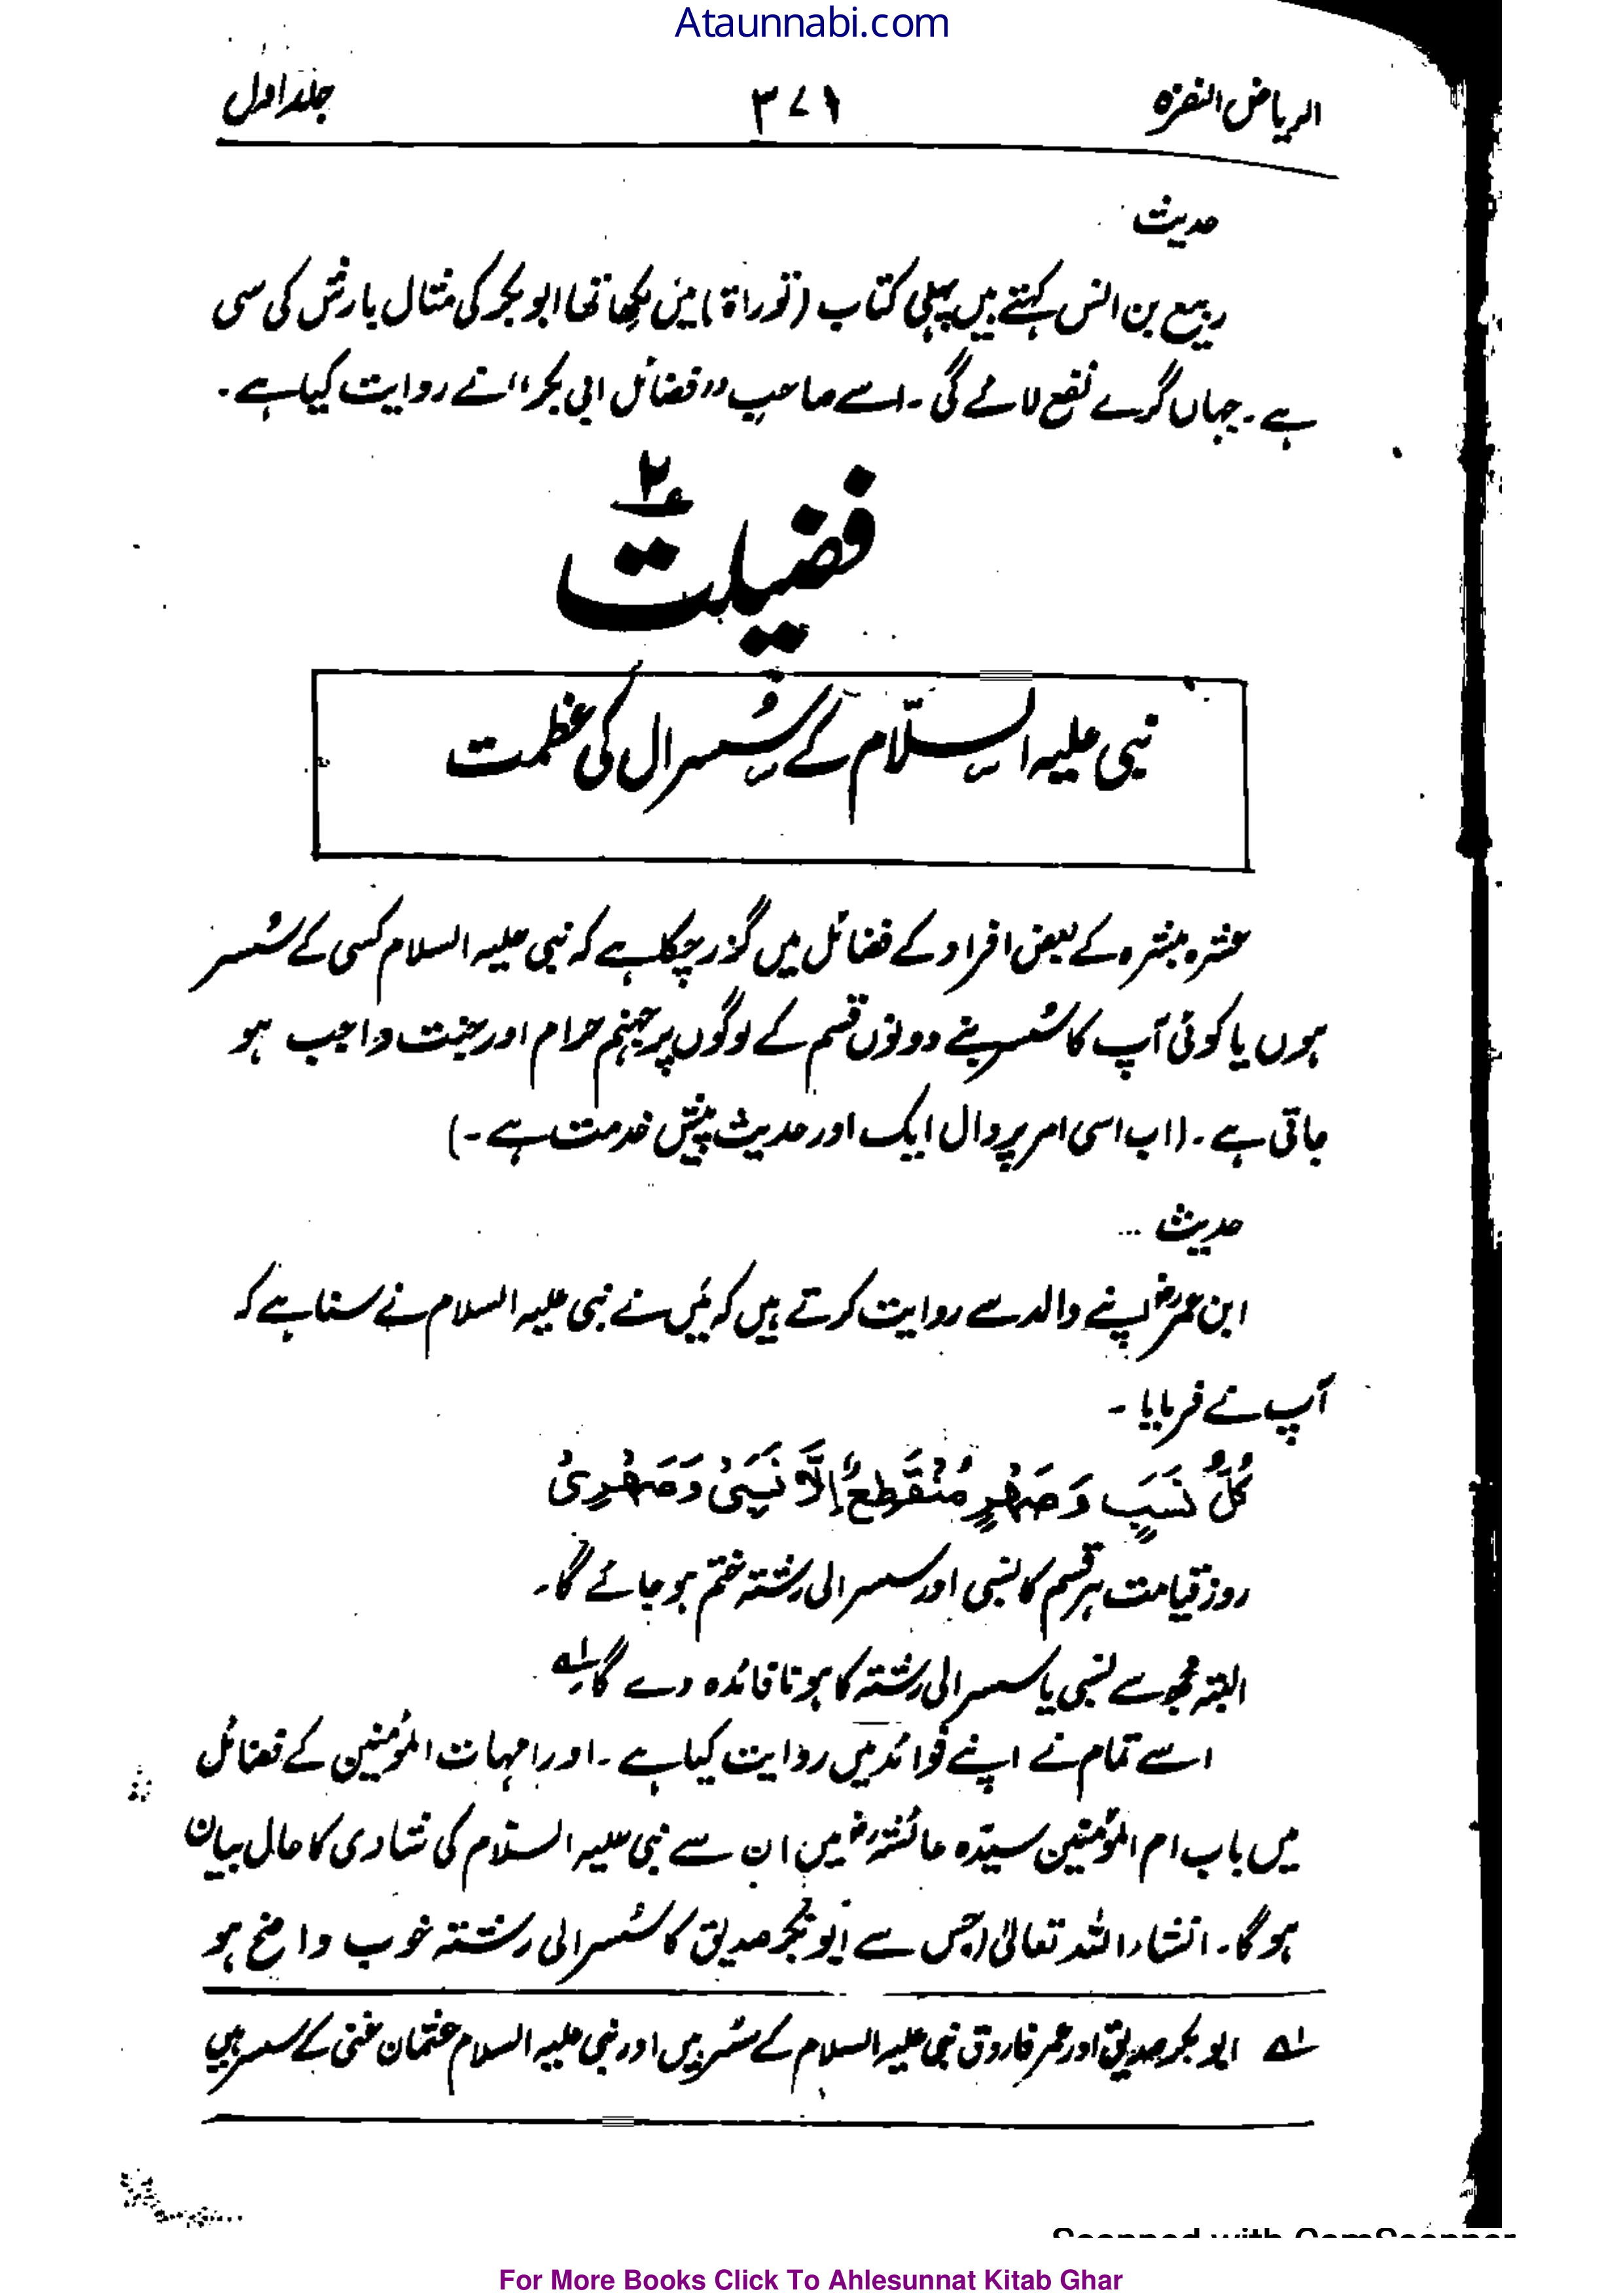 Ataunnabi.com
الریاض النضرہ ۳۷۱ جلد اول
حدیث
ربیع بن انس کہتے ہیں پہلی کتاب (توراۃ) میں لکھا تھا ابو بکر کی مثال بارش کی سی
ہے۔ جہاں گرے نفع لائے گی۔ اسے صاحب ”فضائل ابی بکر“ نے روایت کیا ہے۔
فضیلت ۲
نبی علیہ السلام کے سُسرال کی عظمت
عشرہ مبشرہ کے بعض افراد کے فضائل میں گزر چکا ہے کہ نبی علیہ السلام کسی کے سُسر
ہوں یا کوئی آپ کا سُسر بنے دونوں قسم کے لوگوں پر جہنم حرام اور جنت واجب ہو
جاتی ہے۔ (اب اسی امر پر دال ایک اور حدیث پیش خدمت ہے۔)
حدیث ...
ابن عمرؓ اپنے والد سے روایت کرتے ہیں کہ میں نے نبی علیہ السلام نے سنا ہے کہ
آپ نے فرمایا۔
کُلُّ نَسَبٍ وَصَہْرٍ مُنْقَطِعٌ اِلَّا نَسَبِیْ وَصَہْرِیْ
روز قیامت ہر قسم کا نسبی اور سسرالی رشتہ ختم ہو جائے گا۔
البتہ مجھ سے نسبی یا سسرالی رشتہ کا ہونا فائدہ دے گا۔ لہ
اسے تمام نے اپنے فوائد میں روایت کیا ہے۔ اور امہات المؤمنین کے فضائل
میں باب ام المؤمنین سیّدہ عائشہؓ میں ان سے نبی علیہ السلام کی شادی کا حال بیان
ہوگا۔ انشاء اللہ تعالیٰ (جس سے ابو بکر صدیق کا سُسرالی رشتہ خوب واضح ہو
لہ ابو بکر صدیق اور عمر فاروق نبی علیہ السلام کے سُسر ہیں اور نبی علیہ السلام عثمان غنی کے سسر ہیں
Scanned with CamScanner
For More Books Click To Ahlesunnat Kitab Ghar